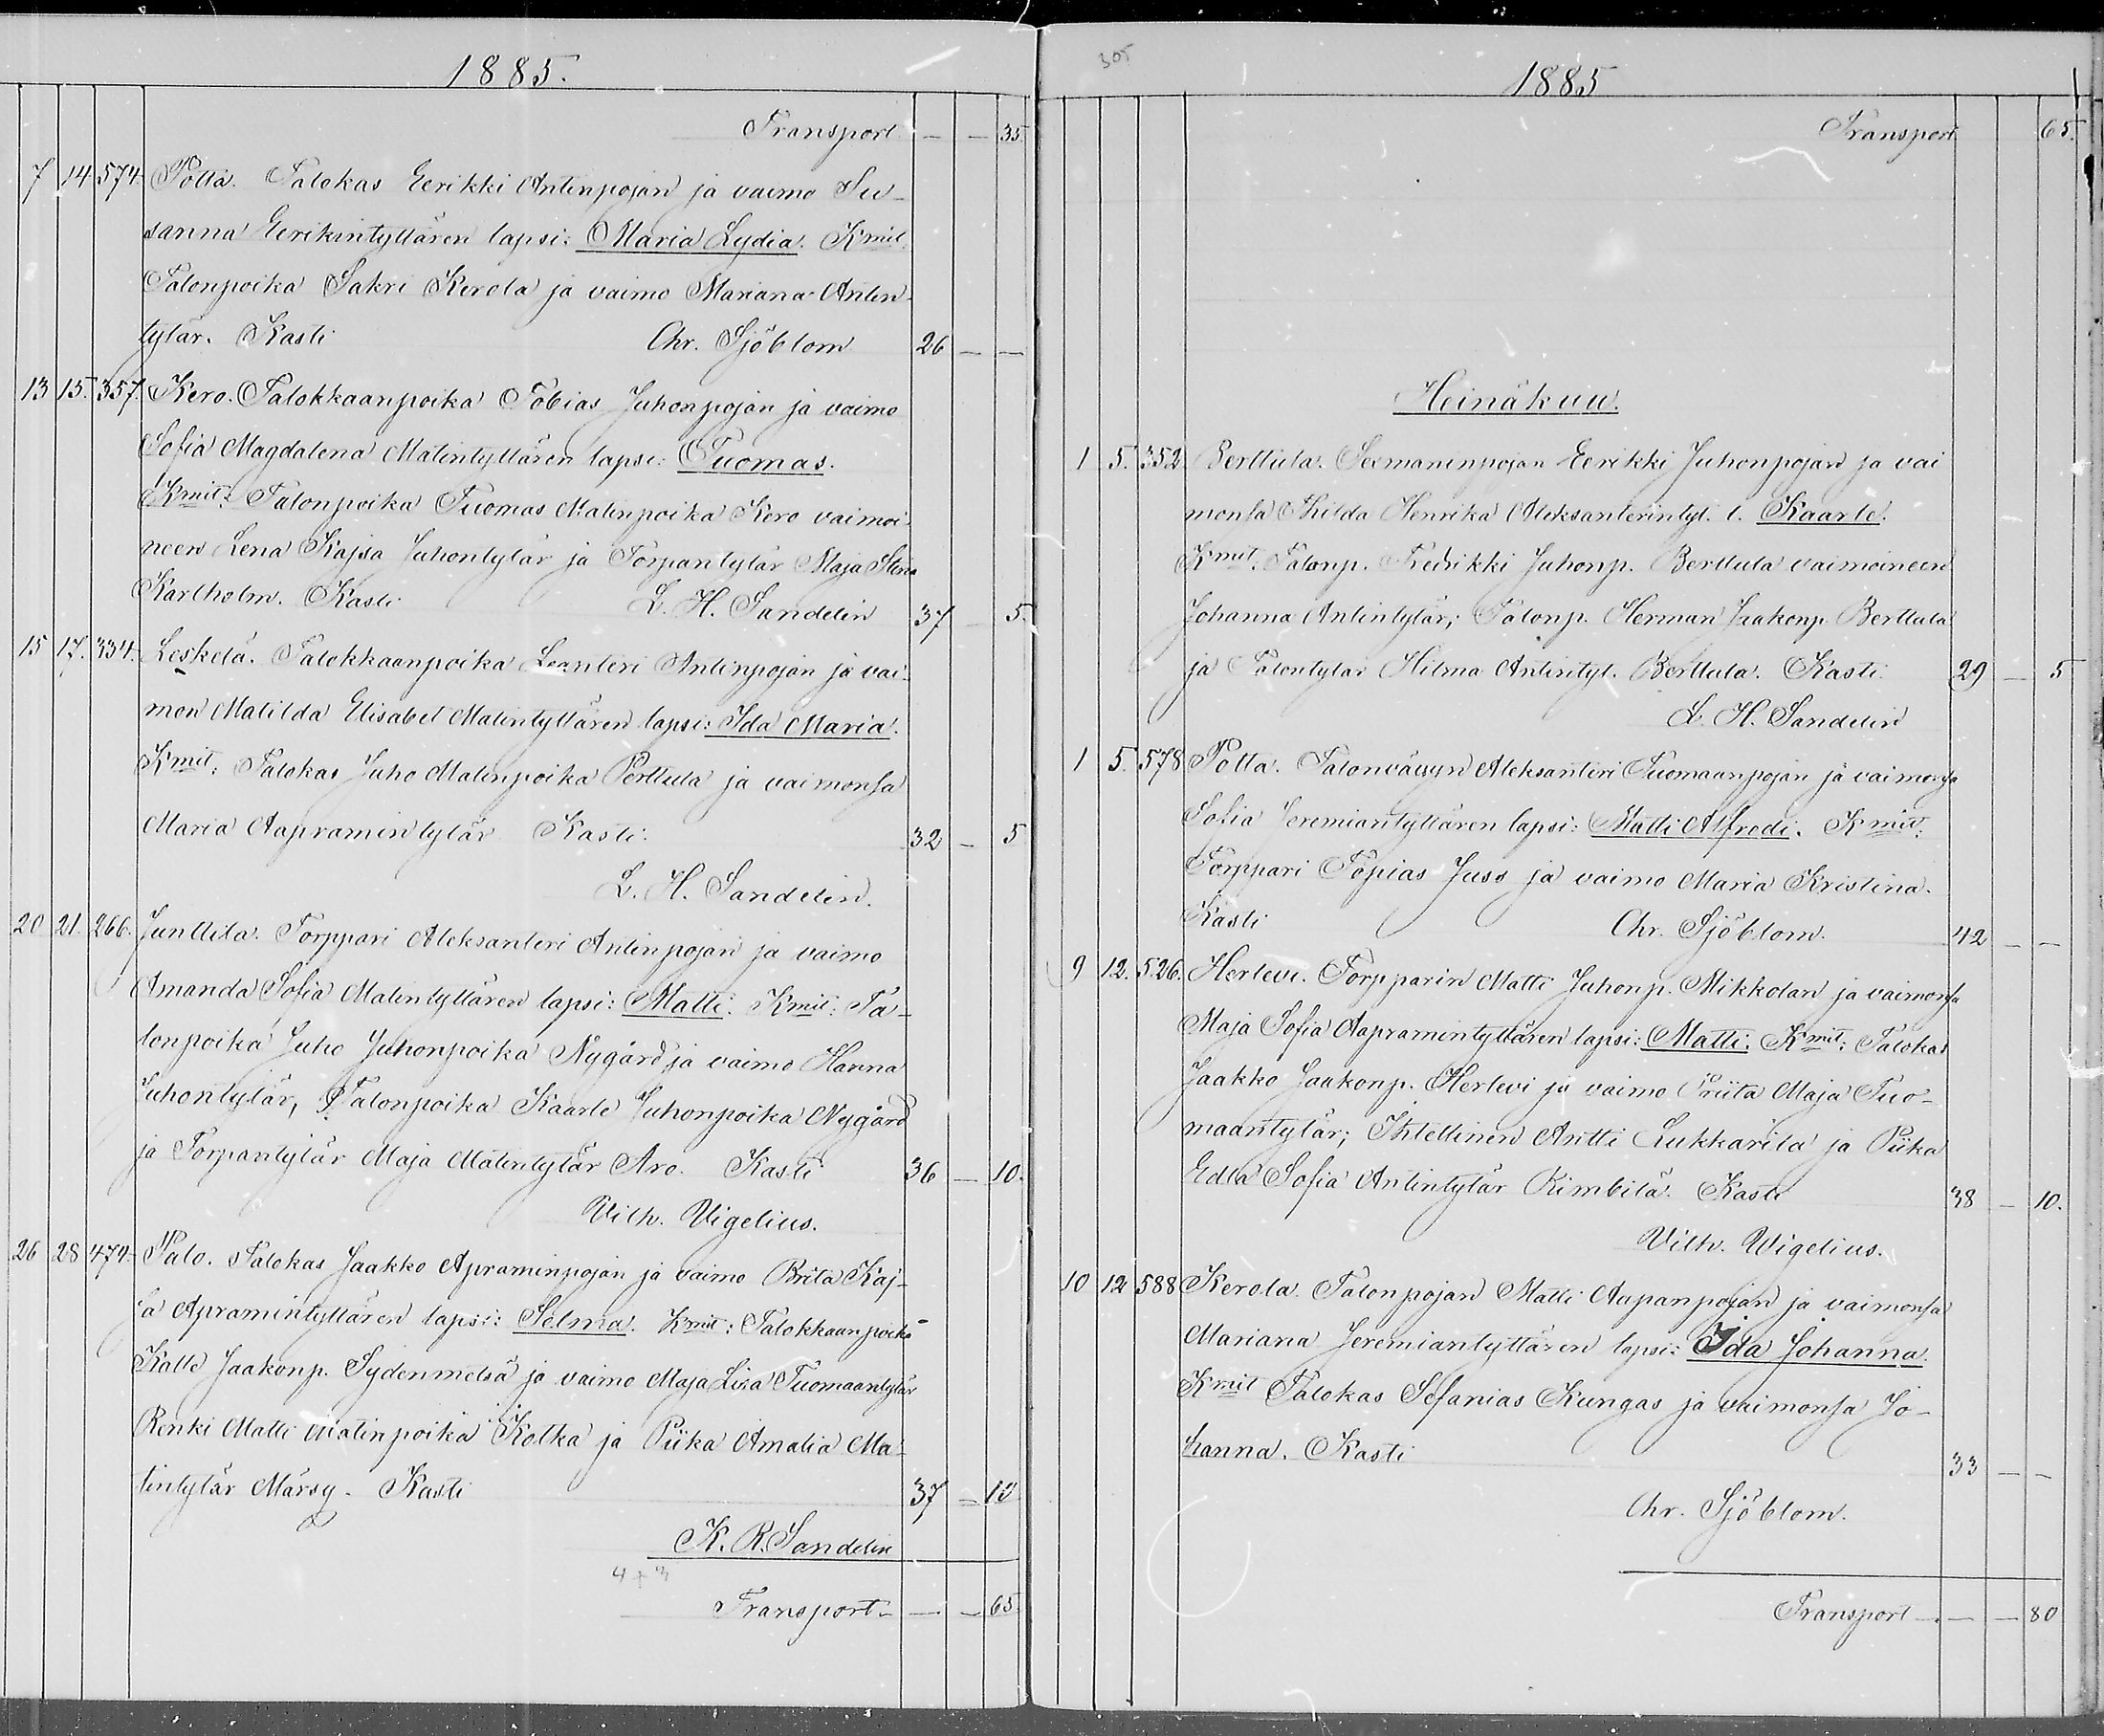 1885.
Transport — — 35.
7 14 574 Potta. Talokas Eerikki Antinpojan ja vaimo Su-
sanna Eerikintyttären lapsi: Maria Lydia. Kmit.
Talonpoika Sakri Kerola ja vaimo Mariana Antin
tytär. Kasti Chr. Sjöblom 26 — —
13 15. 357. Kero. Talokkaanpoika Tobias Juhonpojan ja vaimo
Sofia Magdalena Matintyttären lapsi: Tuomas.
Kmit: Talonpoika Tuomas Matinpoika Kero vaimoi-
neen Lena Kajsa Juhontytär ja Torpantytär Maja Stina
Karlholm. Kasti L. H. Sandelin 37 — 5.
15 17. 334. Leskelä. Talokkaanpoika Leanteri Antinpojan ja vai-
mon Matilda Elisabet Matintyttären lapsi: Ida Maria.
Kmit: Talokas Juho Matinpoika Perttula ja vaimonsa
Maria Aapramintytär Kasti. 32 — 5
L. H. Sandelin.
20 21. 266. Junttila. Torppari Aleksanteri Antinpojan ja vaimo
Amanda Sofia Matintyttären lapsi: Matti. Kmit: Ta-
lonpoika Juho Juhonpoika Nygård ja vaimo Hanna
Juhontytär, Talonpoika Kaarle Juhonpoika Nygård
ja Torpantytär Maja Matintytär Aro. Kasti 36 — 10.
Vilh. Vigelius.
26 28 474. Palo. Talokas Jaakko Apraminpojan ja vaimo Brita Kaj-
sa Apramintyttären lapsi: Selma. Kmit: Talokkaanpoika
Kalle Jaakonp. Sydenmetsä ja vaimo Maja Lisa Tuomaantytär
Renki Matti Matinpoika Kotka ja Piika Amalia Ma-
tintytär Märsy. Kasti 37 — 10
K. R. Sandelin
4 + 3
Transport — — — 65.
305
1885
Transport 65.
Heinäkuu.
1 5. 352 Berttula. Seemaninpojan Eerikki Juhonpojan ja vai
monsa Hilda Henrika Aleksanterintyt. l. Kaarle.
Kmit: Talonp. Fredrikki Juhonp. Berttula vaimoineen
Johanna Antintytär; Talonp. Herman Jaakonp. Berttula
ja Talontytär Hilma Antintyt. Berttula. Kasti 29 — 5
L. H. Sandelin
1 5. 578 Potta. Talonvävyn Aleksanteri Tuomaanpojan ja vaimonsa
Sofia Jeremiantyttären lapsi: Matti Alfredi. Kmit:
Torppari Topias Juss ja vaimo Maria Kristina.
Kasti Chr. Sjöblom. 42 — —
9 12. 526. Herlevi. Torpparin Matti Juhonp. Mikkolan ja vaimonsa
Maja Sofia Aapramintyttären lapsi: Matti. Kmit: Talokas
Jaakko Jaakonp. Herlevi ja vaimo Priita Maja Tuo-
maantytär; Ihtellinen Antti Lukkarila ja Piika
Edla Sofia Antintytär Rimbilä. Kasti 38 — 10.
Vilh. Wigelius.
10 12 588 Kerola. Talonpojan Matti Aapanpojan ja vaimonsa
Mariana Jeremiantyttären lapsi: Ida Johanna.
Kmit Talokas Sefanias Kungas ja vaimonsa Jo-
hanna. Kasti 33 — —
Chr. Sjöblom.
Transport — — — 80